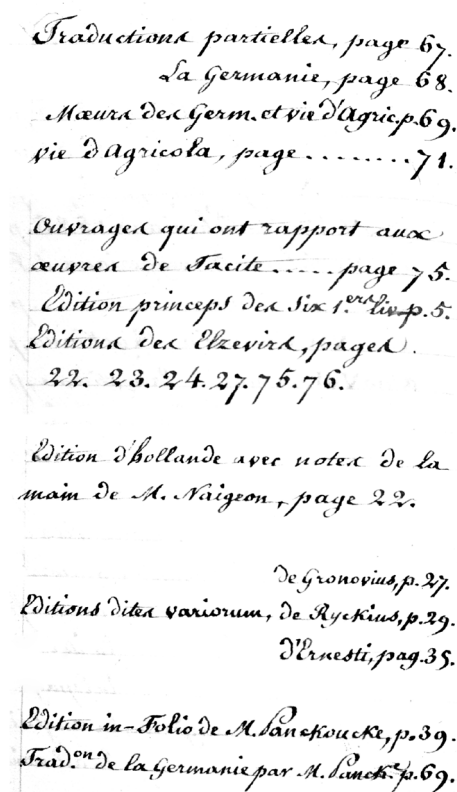 Traductions partielles, page 67.
La Germanie, page 68.
Mœurs des Germ. et vie d'Agric. p. 69.
vie d'Agricola, page ......... 71.
Ouvrages qui ont rapport aux
œuvres de Tacite ..... page 75.
Edition princeps des six 1.ers liv. p. 5.
Editions des Elzevirs, pages
22. 23. 24. 27. 75. 76.
Edition d'hollande avec notes de la
main de M. Naigeon, page 22.
de Gronovius, p. 27.
Editions dites variorum, de Ryckius, p. 29.
d'Ernesti, pag. 35.
Edition in-Folio de M. Panckoucke, p. 39.
Trad.on de la Germanie par M. Panck.e p. 69.